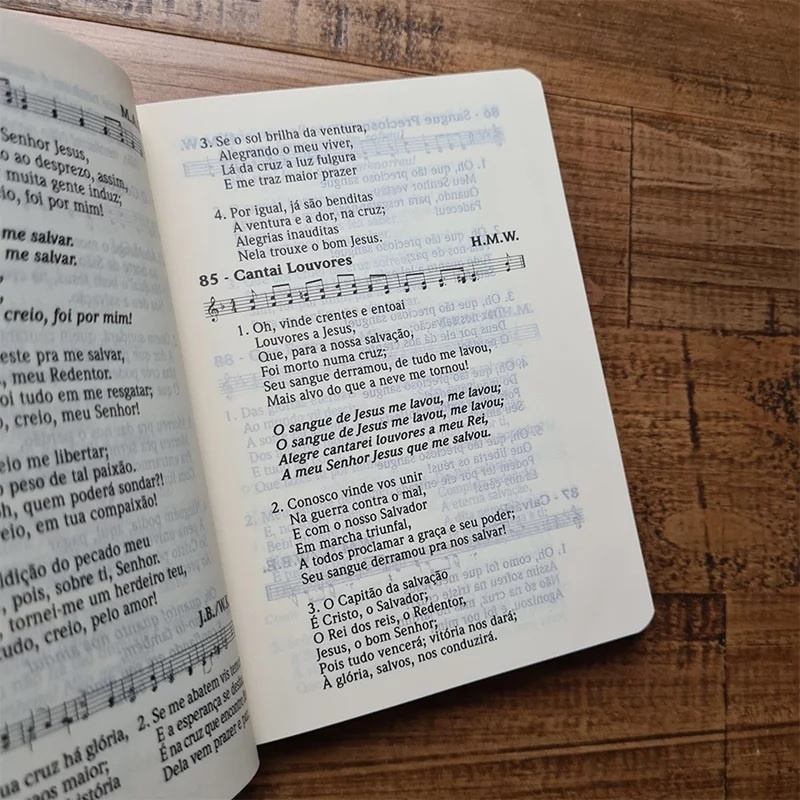 M.
Senhor Jesus,
ao desprezo, assim,
muita gente induz;
, foi por mim!
me salvar.
me salvar.
creio, foi por mim!
este pra me salvar,
, meu Redentor.
oi tudo em me resgatar;
, creio, meu Senhor!
eio me libertar;
peso de tal paixão.
h, quem poderá sondar?!
eio, em tua compaixão!
ldição do pecado meu
, pois, sobre ti, Senhor.
, tornei-me um herdeiro teu,
udo, creio, pelo amor!
J.B./W.
ua cruz há glória,
os maior;
istória
2. Se me abatem vis
E a esperança se
É na cruz que encontro
Dela vem prazer e
3. Se o sol brilha da ventura,
Alegrando o meu viver,
Lá da cruz a luz fulgura
E me traz maior prazer
4. Por igual, já são benditas
A ventura e a dor, na cruz;
Alegrias inauditas
Nela trouxe o bom Jesus.
85 - Cantai Louvores H.M.W.
1. Oh, vinde crentes e entoai
Louvores a Jesus,
Que, para a nossa salvação,
Foi morto numa cruz;
Seu sangue derramou, de tudo me lavou,
Mais alvo do que a neve me tornou!
O sangue de Jesus me lavou, me lavou;
O sangue de Jesus me lavou, me lavou;
Alegre cantarei louvores a meu Rei,
A meu Senhor Jesus que me salvou.
2. Conosco vinde vos unir
Na guerra contra o mal,
E com o nosso Salvador
Em marcha triunfal,
A todos proclamar a graça e seu poder;
Seu sangue derramou pra nos salvar!
3. O Capitão da salvação
É Cristo, o Salvador;
O Rei dos reis, o Redentor,
Jesus, o bom Senhor;
Pois tudo vencerá; vitória nos dará;
À glória, salvos, nos conduzirá.